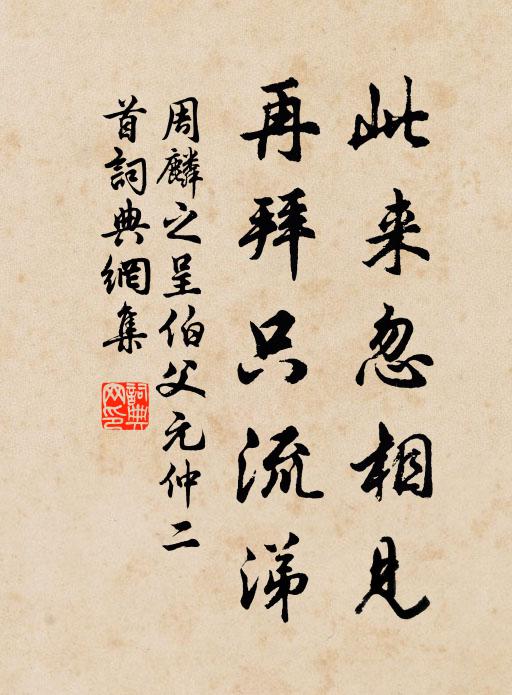 此来忽相見
再拜只流涕
周麟之呈伯父元仲二
首詞典網集
詞典网印